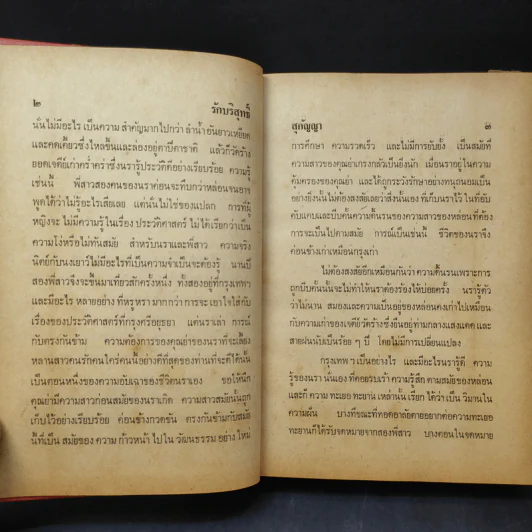 ๒ รักบริสุทธิ์
นั้นไม่มีอะไร เป็นความ สำคัญมากไปกว่า ลำน้ำ อันยาวเหยียด
และคดเคี้ยวซึ่งไหลขึ้นและล่องอยู่ตาปีตาชาติ แล้วก็วัดร้าง
ยอดเจดีย์เก่าคร่ำคร่าซึ่งนรารู้ประวัติดีอย่างเรียบร้อย ความรู้
เช่นนี้ พี่สาวสองคนของนราค่อนจะทึ่งกว่าหล่อนจนอาจ
พูดได้ว่าไม่รู้อะไรเสียเลย แต่นั่นไม่ใช่ของแปลก การที่ผู้
หญิงจะ ไม่มีความรู้ ในเรื่อง ประวัติศาสตร์ ไม่ได้เรียกว่าเป็น
ความโง่หรือไม่ทันสมัย สำหรับนราและพี่สาว ความจริง
นิตย์กับนงเยาว์ไม่มีอะไรที่เป็นความจำเป็นจะต้องรู้ นานปี
สองพี่สาวจึงจะขึ้นมาเที่ยวสักครั้งหนึ่ง ทั้งสองอยู่ที่กรุงเทพฯ
และมีอะไร หลายอย่าง ที่หรูหรา มากกว่า การจะ เอาใจใส่กับ
เรื่องของประวัติศาสตร์ที่กรุงศรีอยุธยา แต่นราเล่า การณ์
กับตรงกันข้าม ความต้องการของคุณย่าของนราที่จะเลี้ยง
หลานสาวคนรักคนใคร่คนนี้อย่างดีที่สุดของท่านที่จะดีได้นั้น
เป็นตอนหนึ่งของความอับเฉาของชีวิตนราเอง ขอให้นึก
คุณย่ามีความสาวก่อนสมัยของนราเกิด ความสาวสมัยนั้นถูก
เก็บไว้อย่างเรียบร้อย ค่อนข้างกวดขัน ตรงกันข้ามกับสมัย
นี้ที่เป็น สมัยของ ความ ก้าวหน้า ไป ใน วัฒนธรรม อย่าง ใหม่
สุกัญญา ๓
การศึกษา ความรวดเร็ว และไม่มีการยับยั้ง เป็นสมัยที่
ความสาวของคุณย่าเกรงกลัวเป็นยิ่งนัก เมื่อนราอยู่ในความ
คุ้มครองของคุณย่า และได้ถูกระวังรักษาอย่างทนุถนอมเป็น
อย่างยิ่งนั้นไม่ต้องสงสัยเลยว่าสิ่งนั้นเอง ที่เก็บนราไว้ ในที่อับ
คับแคบและขับความดื้นรนของความสาวของหล่อนที่ต้อง
การจะเป็นไปตามสมัย การณ์เป็นเช่นนี้ ชีวิตของนราจึง
ค่อนข้างเก่าเหมือนกรุงเก่า
ไม่ต้องสงสัยอีกเหมือนกันว่า ความดิ้นรนเพราะการ
ถูกบีบคั้นนั้นจะไม่ทำให้นราต้องร้องไห้บ่อยครั้ง นรารู้ตัว
ว่าไม่นาน สมองและความเป็นอยู่ของหล่อนคงเก่าไปเหมือน
กับความเก่าของเจดีย์วัดร้างซึ่งยืนอยู่ท่ามกลางแสงแดด และ
สายฝนนับเป็นร้อย ๆ ปี โดยไม่มีการเปลี่ยนแปลง
กรุงเทพ ฯ เป็นอย่างไร และมีอะไรนรารู้ดี ความ
รู้ของนรา นั่นเอง ที่คอยรบเร้า ความรู้สึก ตามสมัยของหล่อน
และก็ ความ ทะเยอ ทะยาน เหล่านั้น เรียก ได้ว่า เป็น วิมานใน
ความฝัน บางทีขณะที่ทอดอาลัยตายอยากต่อความทะเยอ
ทะยานก็ได้รับจดหมายจากสองพี่สาว บางตอนในจดหมาย